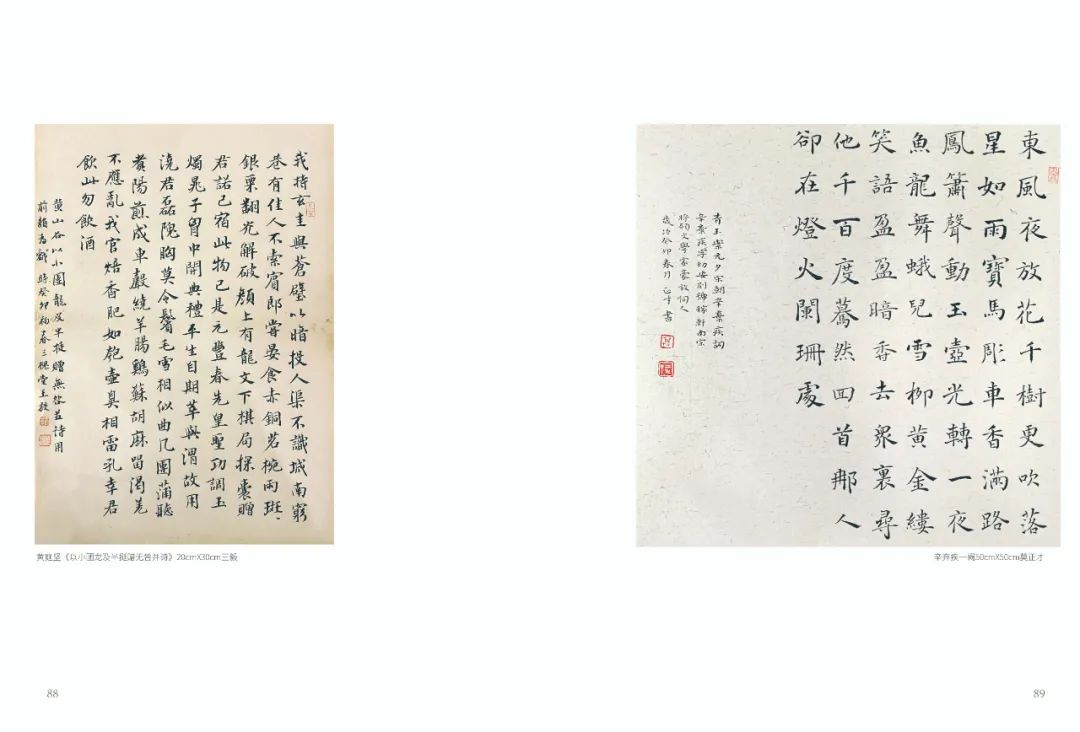 我持玄圭與蒼璧以暗投人渠不識城南窮
巷有佳人不索賓郎嘗晏食赤銅茗椀雨斑、
銀粟翻光解破顏上有龍文下棋局探囊贈
君諾已宿此物已是元豐春先皇聖功調玉
燭晁子胷中開典禮平生自期莘與渭故用
澆君磊隗胸莫令鬢毛雪相似曲几團蒲聽
煮湯煎成車聲繞羊腸鷄蘇胡麻留渴羌
不應亂我官焙香肥如瓠壺鼻相雷孔幸君
飲此勿飲酒
黃山谷以小團龍及半挺贈無咎並詩用
前韻為戲 時癸卯初春三槐堂王毅
黄庭坚《以小团龙及半挺赠无咎并诗》20cmX30cm王毅
88
東風夜放花千樹更吹落
星如雨寶馬彫車香滿路
鳳簫聲動玉壺光轉一夜
魚龍舞蛾兒雪柳黃金縷
笑語盈盈暗香去衆裏尋
他千百度驀然回首那人
卻在燈火闌珊處
青玉案元夕宋朝辛棄疾詞
辛棄疾字幼安別號稼軒南宋
將領文學家豪放詞人
歲次癸卯春月正才書
辛弃疾一阙50cmX50cm莫正才
89